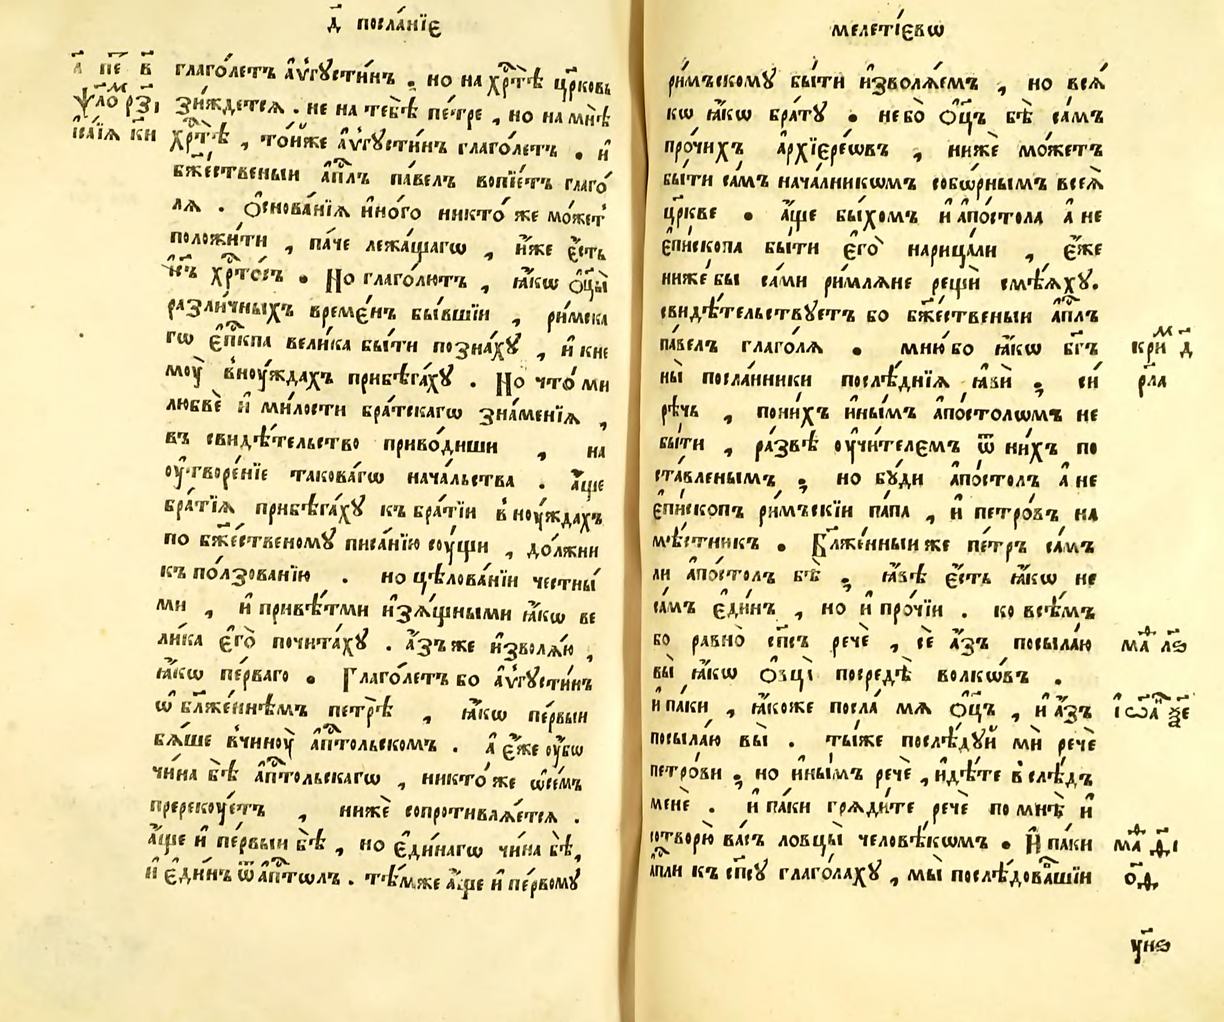 д҃ посла́нїе
а҃ пе҃ в҃
ѱало рзі
їса́їѧ ки
глаго́летъ а҆ѵгꙋсти́нъ . но на хр҃тѣ̀ цр҃ковь
зи́ждетсѧ . не на тебѣ̀ пе́тре , но на мнѣ̀
хр҃тѣ̀ , то́йже а҆ѵгꙋсти́нъ глаго́летъ . и҆
бж҃е́ственыи а҆пл҃ъ па́велъ вопїе́тъ глаго́
лѧ . Ѻ҆снова́нїѧ и҆но́го никто́же мо́жет
положи́ти , па́че лежа́щагѡ , и҆́же є҆́сть
і҆с҃ъ хр҃то́съ . Но глаго́лютъ , ꙗ҆́кѡ ѻ҆ц҃ы̀
разли́чныхъ време́нъ бы́вшїи , ри́мска
гѡ є҆пк҃па вели́ка бы́ти позна́хꙋ , и҆ к не
моу̀ в ноу́ждахъ прибѣга́хꙋ . Но что́ ми
любвѐ и҆ ми́лости бра́тскагѡ зна́менїѧ ,
въ свидѣ́тельство приво́диши , на
оу҆творе́нїе таково́гѡ нача́льства . а҆́ще
бра́тїѧ прибѣга́хꙋ къ бра́тїи в ноу́ждахъ
по бж҃е́ственомꙋ писа́нїю соу́щи , до́лжни
къ по́лзованїю . но цѣлова́нїи честны́
ми , и҆ привѣ́тми и҆зѧ́щными ꙗ҆́кѡ ве
ли́ка є҆гѡ̀ почита́хꙋ . а҆́зъ же и҆зволѧ́ю ,
ꙗ҆́кѡ пе́рваго . Глаго́летъ бо а҆ѵгꙋсти́нъ
ѡ҆ бл҃же́ннѣмъ петрѣ̀ , ꙗ҆́кѡ пе́рвыи
бѧ́ше в чиноу̀ а҆пт҃ольскомъ . а҆ є҆́же оу҆́бѡ
чи́на бѣ̀ а҆пт҃ольскагѡ , никто́же ѡ҆ се́мъ
пререкоу́етъ , нижѐ сопротивлѧ́етсѧ .
а҆́ще и҆ пе́рвыи бѣ̀ , но є҆ди́нагѡ чи́на бѣ̀ ,
и҆ є҆ди́нъ ѿ а҆пт҃ѡлъ . тѣ́мже а҆́ще и҆ пе́рвомꙋ
меле́тїевѡ
ри́мъскомꙋ бы́ти и҆зволѧ́емъ , но всѧ́
кѡ ꙗ҆́кѡ бра́тꙋ . небо̀ ѻ҆ц҃ъ бѣ̀ са́мъ
про́чихъ а҆рхїере́ѡвъ , нижѐ мо́жетъ
бы́ти са́мъ нача́лникѡмъ собѡ́рнымъ всеѧ̀
цр҃кве . а҆́ще бы́хомъ и҆ а҆по́стола а҆ не
є҆пи́скопа бы́ти є҆го̀ нарица́ли , є҆́же
ниже́ бы са́ми ри́млѧне рещѝ смѣ́ѧхꙋ.
свидѣ́тельствꙋетъ бо бж҃е́ственыи а҆пл҃ъ
па́велъ глаго́лѧ . мню́ бо ꙗ҆́кѡ бг҃ъ
ны̀ посла́нники послѣ́днїѧ ꙗ҆вѝ ; сѝ
рѣ́чь , по ни́хъ и҆ны́мъ а҆по́столѡмъ не
бы́ти , ра́звѣ оу҆чи́телемъ ѿ ни́хъ по
ста́вленымъ ; но бꙋ́ди а҆по́столъ а҆ не
є҆пи́скопъ ри́мъскїи па́па , и҆ петро́въ на
мѣ́стникъ . Бл҃же́нныи же пе́тръ са́мъ
ли а҆по́столъ бѣ̀ ; ꙗ҆́вѣ є҆́сть ꙗ҆́кѡ не
са́мъ є҆ди́нъ , но и҆ про́чїи . ко всѣ́мъ
бо равно̀ сп҃съ речѐ , сѐ а҆́зъ посыла́ю
вы̀ ꙗ҆́кѡ ѻ҆́вцы̀ посредѣ̀ волкѡ́въ .
и҆ па́ки , ꙗ҆́коже посла́ мѧ ѻ҆ц҃ъ , и҆ а҆́зъ
посыла́ю вы̀ . ты́же послѣ́дꙋй мѝ речѐ
петро́ви ; но и҆ны́мъ речѐ , и҆дѣ́те в слѣ́дъ
менѐ . и҆ па́ки грѧди́те речѐ по мнѣ̀ и҆
сотворю̀ ва́съ ловцы̀ человѣ́кѡмъ . И҆ па́ки
а҆пл҃и къ сп҃сꙋ глаго́лахꙋ , мы̀ послѣ́дова́вшїи
кри д҃
рл҃а
ма лѳ
і҆ѡа
ма
ѻ҃д
у҃нѳ